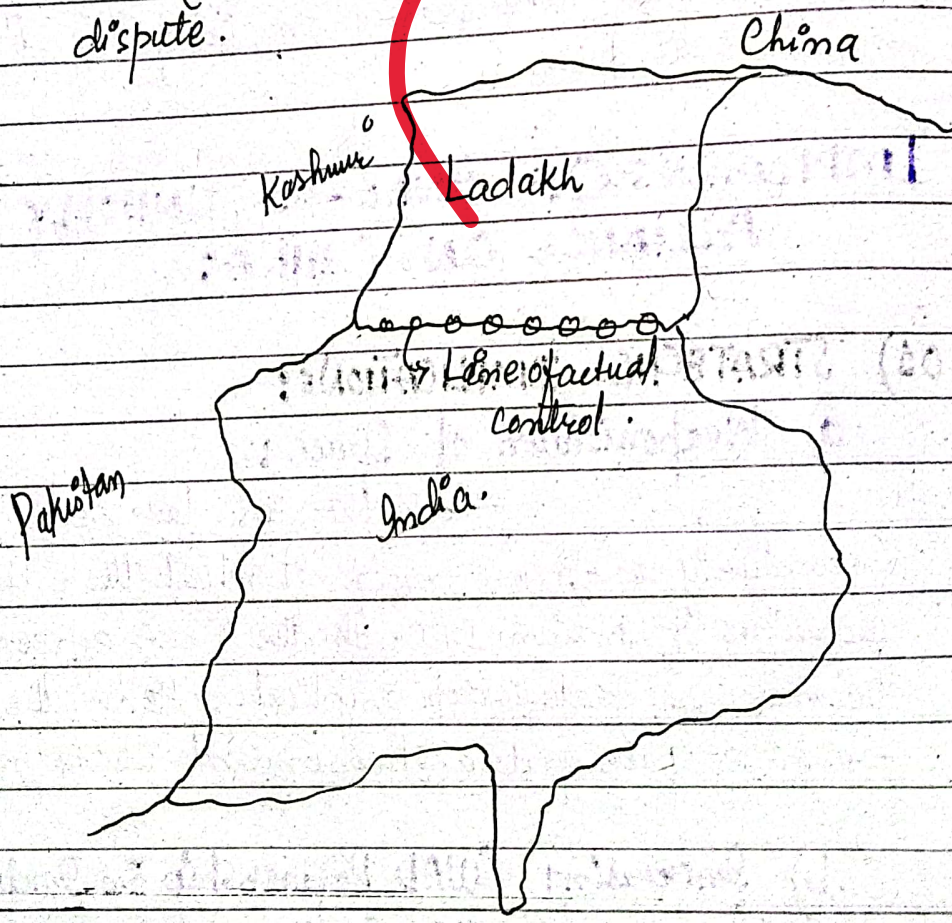 dispute.
China
Kashmir
Ladakh
Line of actual
control.
Pakistan
India.